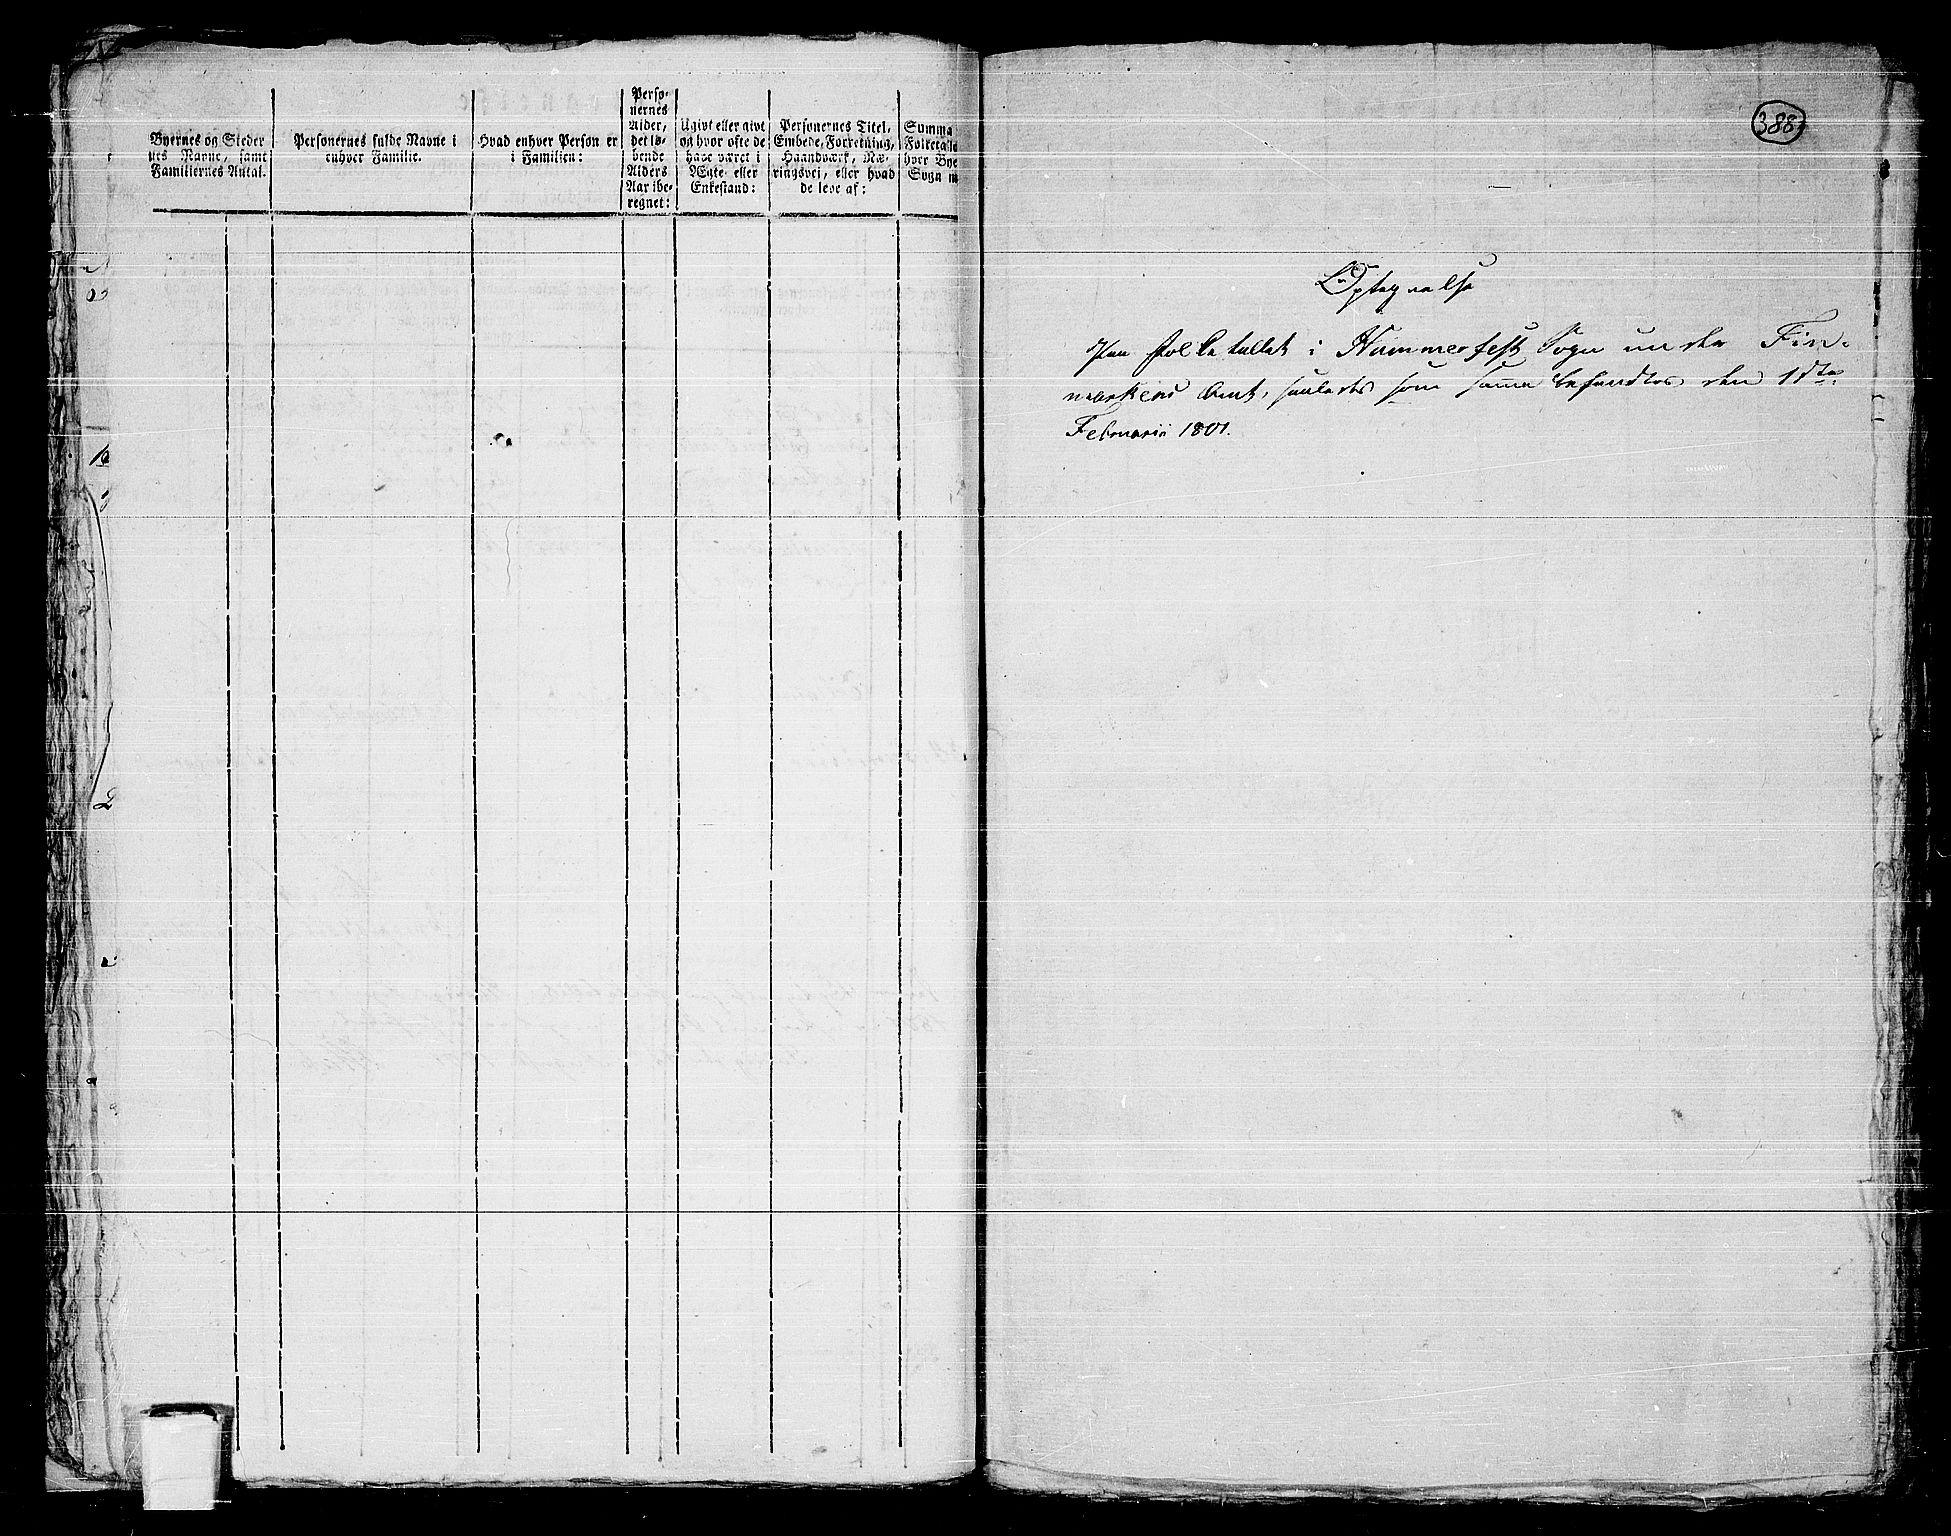 Byernes og Steder
nes Navne, samt
Familiernes Antal.
Personernes fulde Navne i
enhver Familie.
Hvad enhver Person er
i Familien:
Perso-
nernes
Alder,
det lø-
bende
Alders
Aar ibe-
regnet:
Ugivt eller givt
og hvor ofte de
have været i
Ægte- eller
Enkestand:
Personernes Titel,
Embede, Forretning,
Haandværk, Næ-
ringsvei, eller hvad
de leve af:
Summa
Folketalle
hver Bye
Sogn m
388
Optegnelse
Paa Folketallet i Hammerfest Sogn under Fin-
markens Amt, saaledes som samme befandtes den 1ste
Februarii 1801.